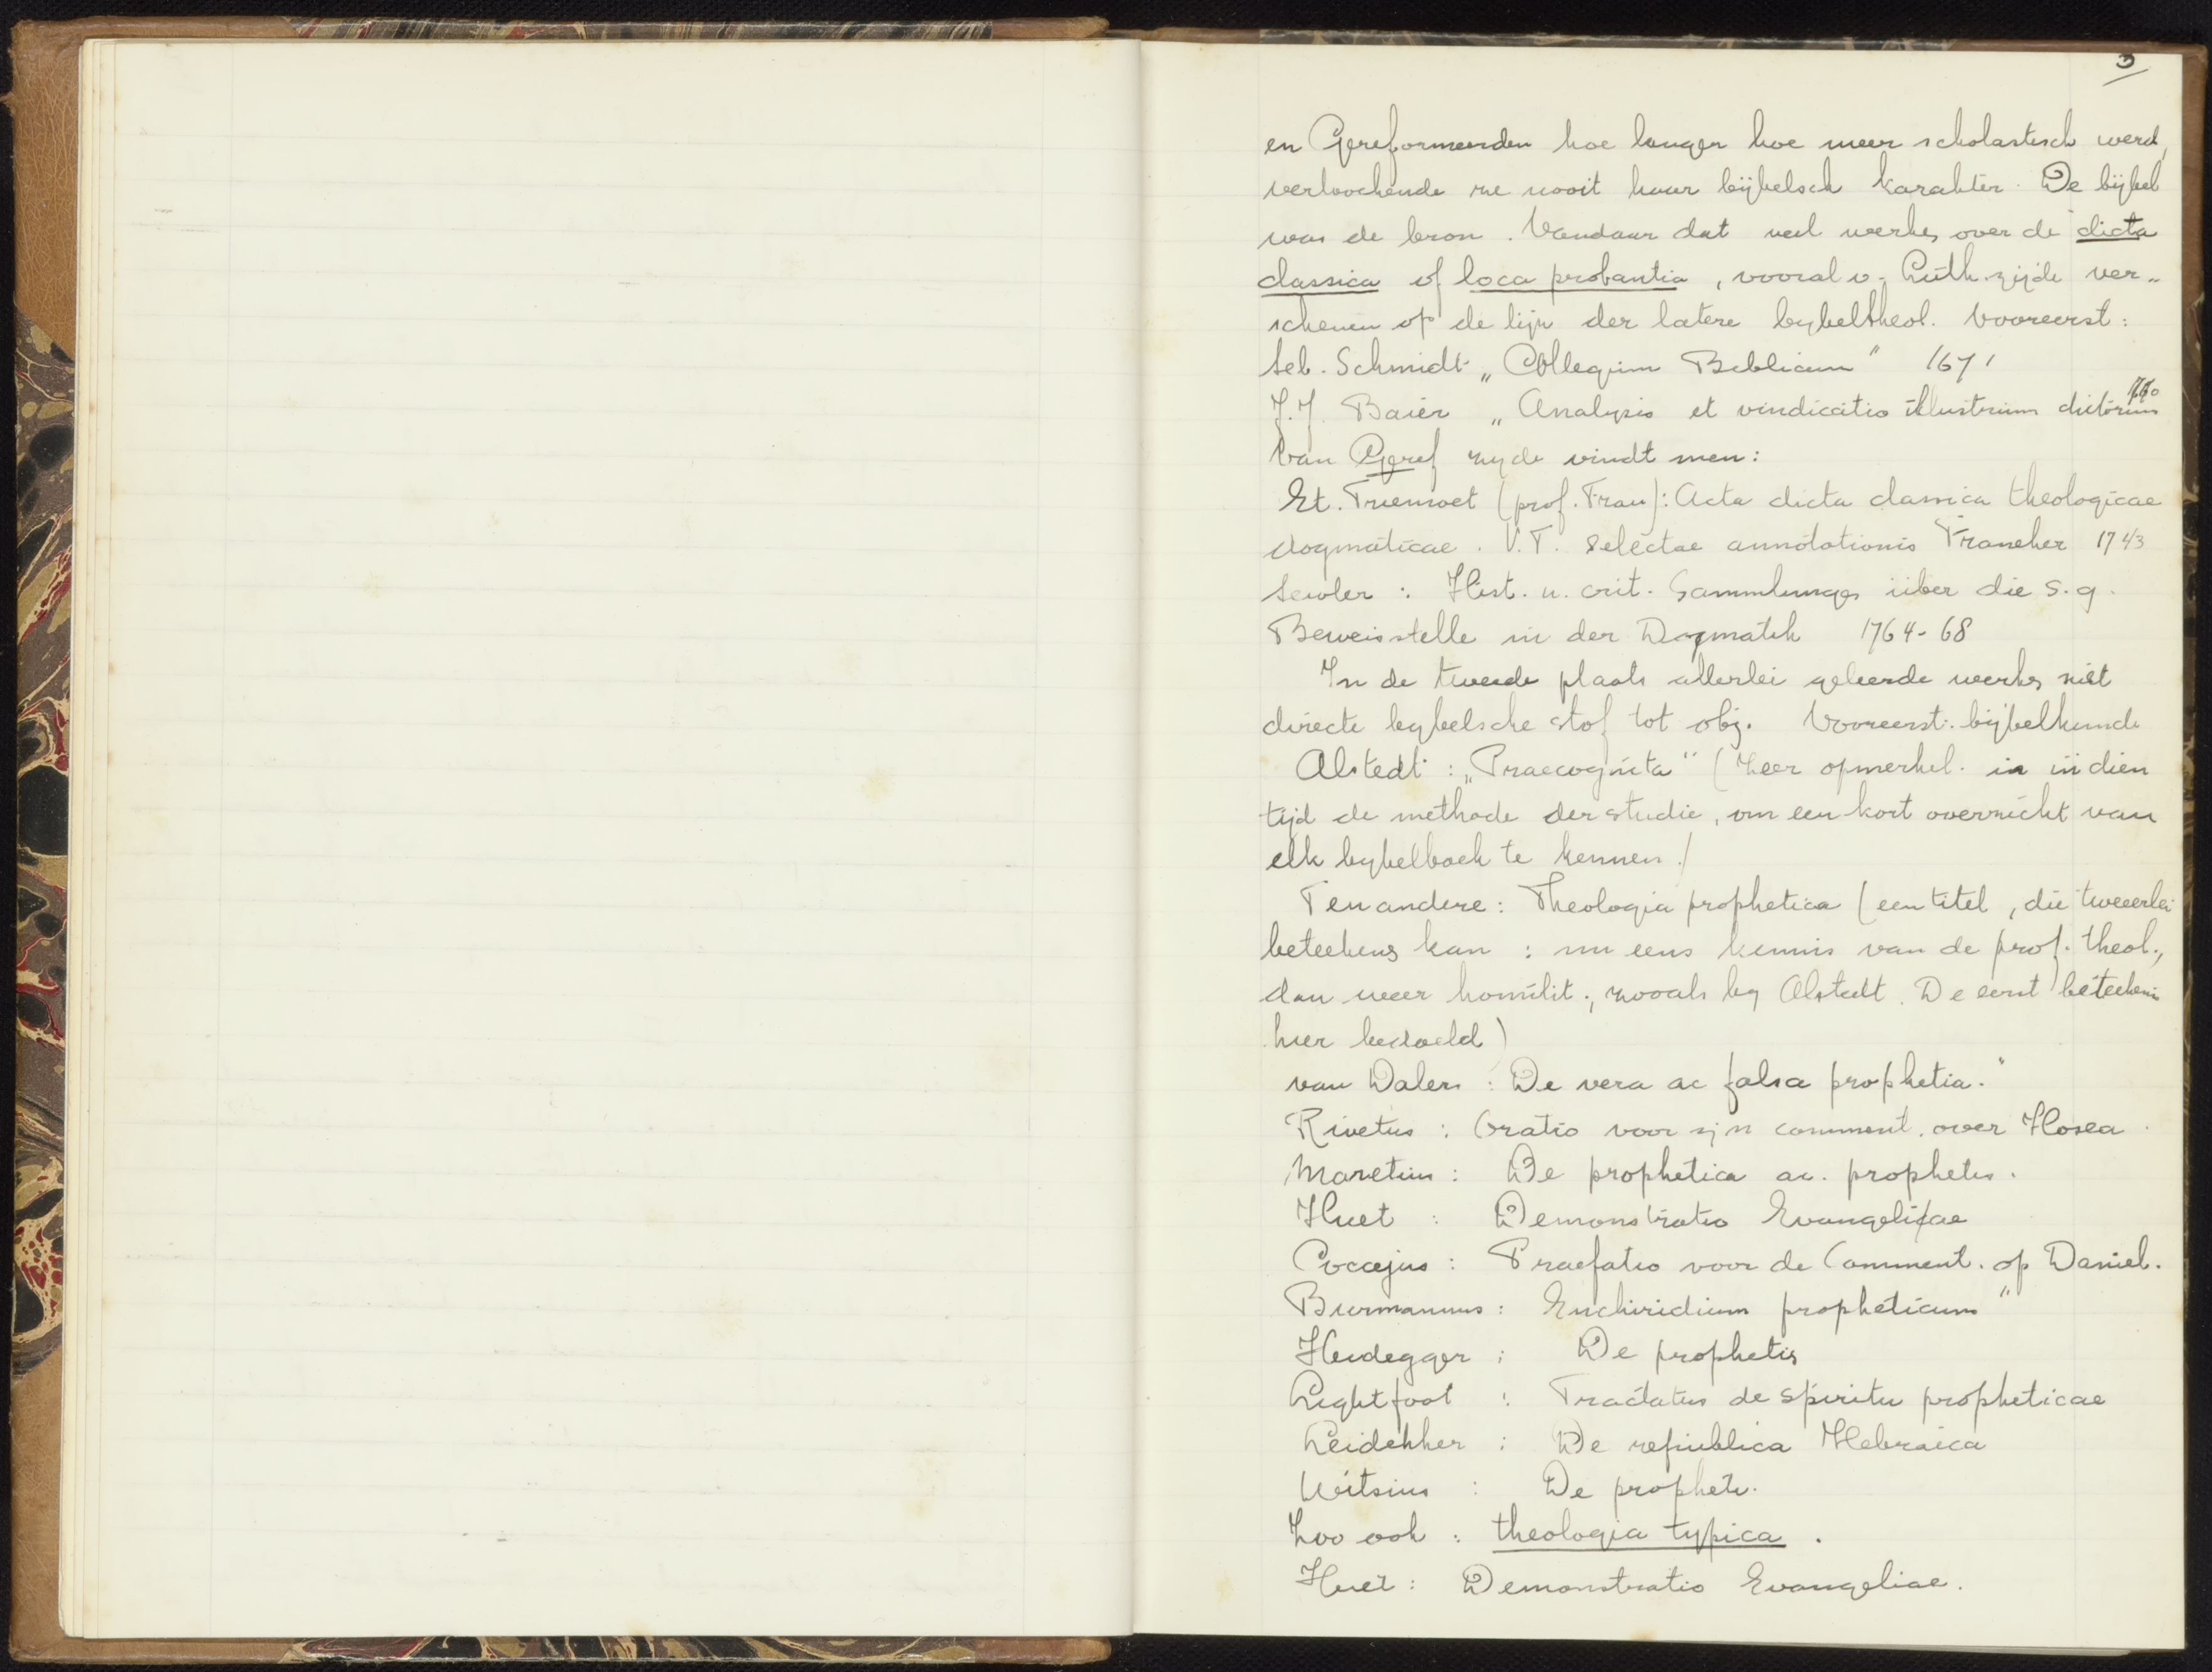 3
en Gereformeerden hoe langer hoe meer scholastisch werd,
verloochende ze nooit haar bijbelsch karakter. De bijbel
was de bron. Vandaar dat veel werken over de dicta
classica of loca probantia, vooral v. Luth. zijde ver-
schenen op de lijn der latere bybeltheol. Vooreerst:
Seb. Schmidt „Collegium Biblicum" 1671
J.J. Baier „Analysis et vindicatio illustrium dictorum
Van Geref zyde vindt men:
Et. Truemoet (prof. Fran): Acta dicta classica theologicae
dogmaticae. V.T. selectae annotationis Franeker 1743
Semler: Hist. u. crit. Sammlungen über die s.g.
Beweisstelle in der Dogmatik 1764-68
In de tweede plaats allerlei geleerde werken niet
directe bybelsche stof tot obj. Vooreerst: bijbelkunde
Alstedt: „Praecognita" (Zeer opmerkel. is in dien
tijd de methode der studie, om een kort overzicht van
elk bybelboek te kennen.)
Ten andere: Theologia prophetica (een titel, die tweeerlei
beteekens kan: nu eens kennis van de prof. theol.,
dan weer homilit., zooals by Alstedt. De eerst beteekenis
hier bedoeld)
van Dalen: De vera ac falsa prophetia."
Rivetus: Oratio voor zijn comment. over Hosea.
Maretius: De prophetica ac. prophetis.
Huet: Demonstratio Evangeliae
Coccejus: Praefatio voor de Comment. op Daniel.
Burmannus: Enchiridium propheticum"
Heidegger: De prophetis
Lightfoot: Tractatus de spiritu propheticae
Leidekker: De republica Hebraica
Witsius: De prophetis.
Zoo ook: theologia typica.
Huet: Demonstratio Evangeliae.